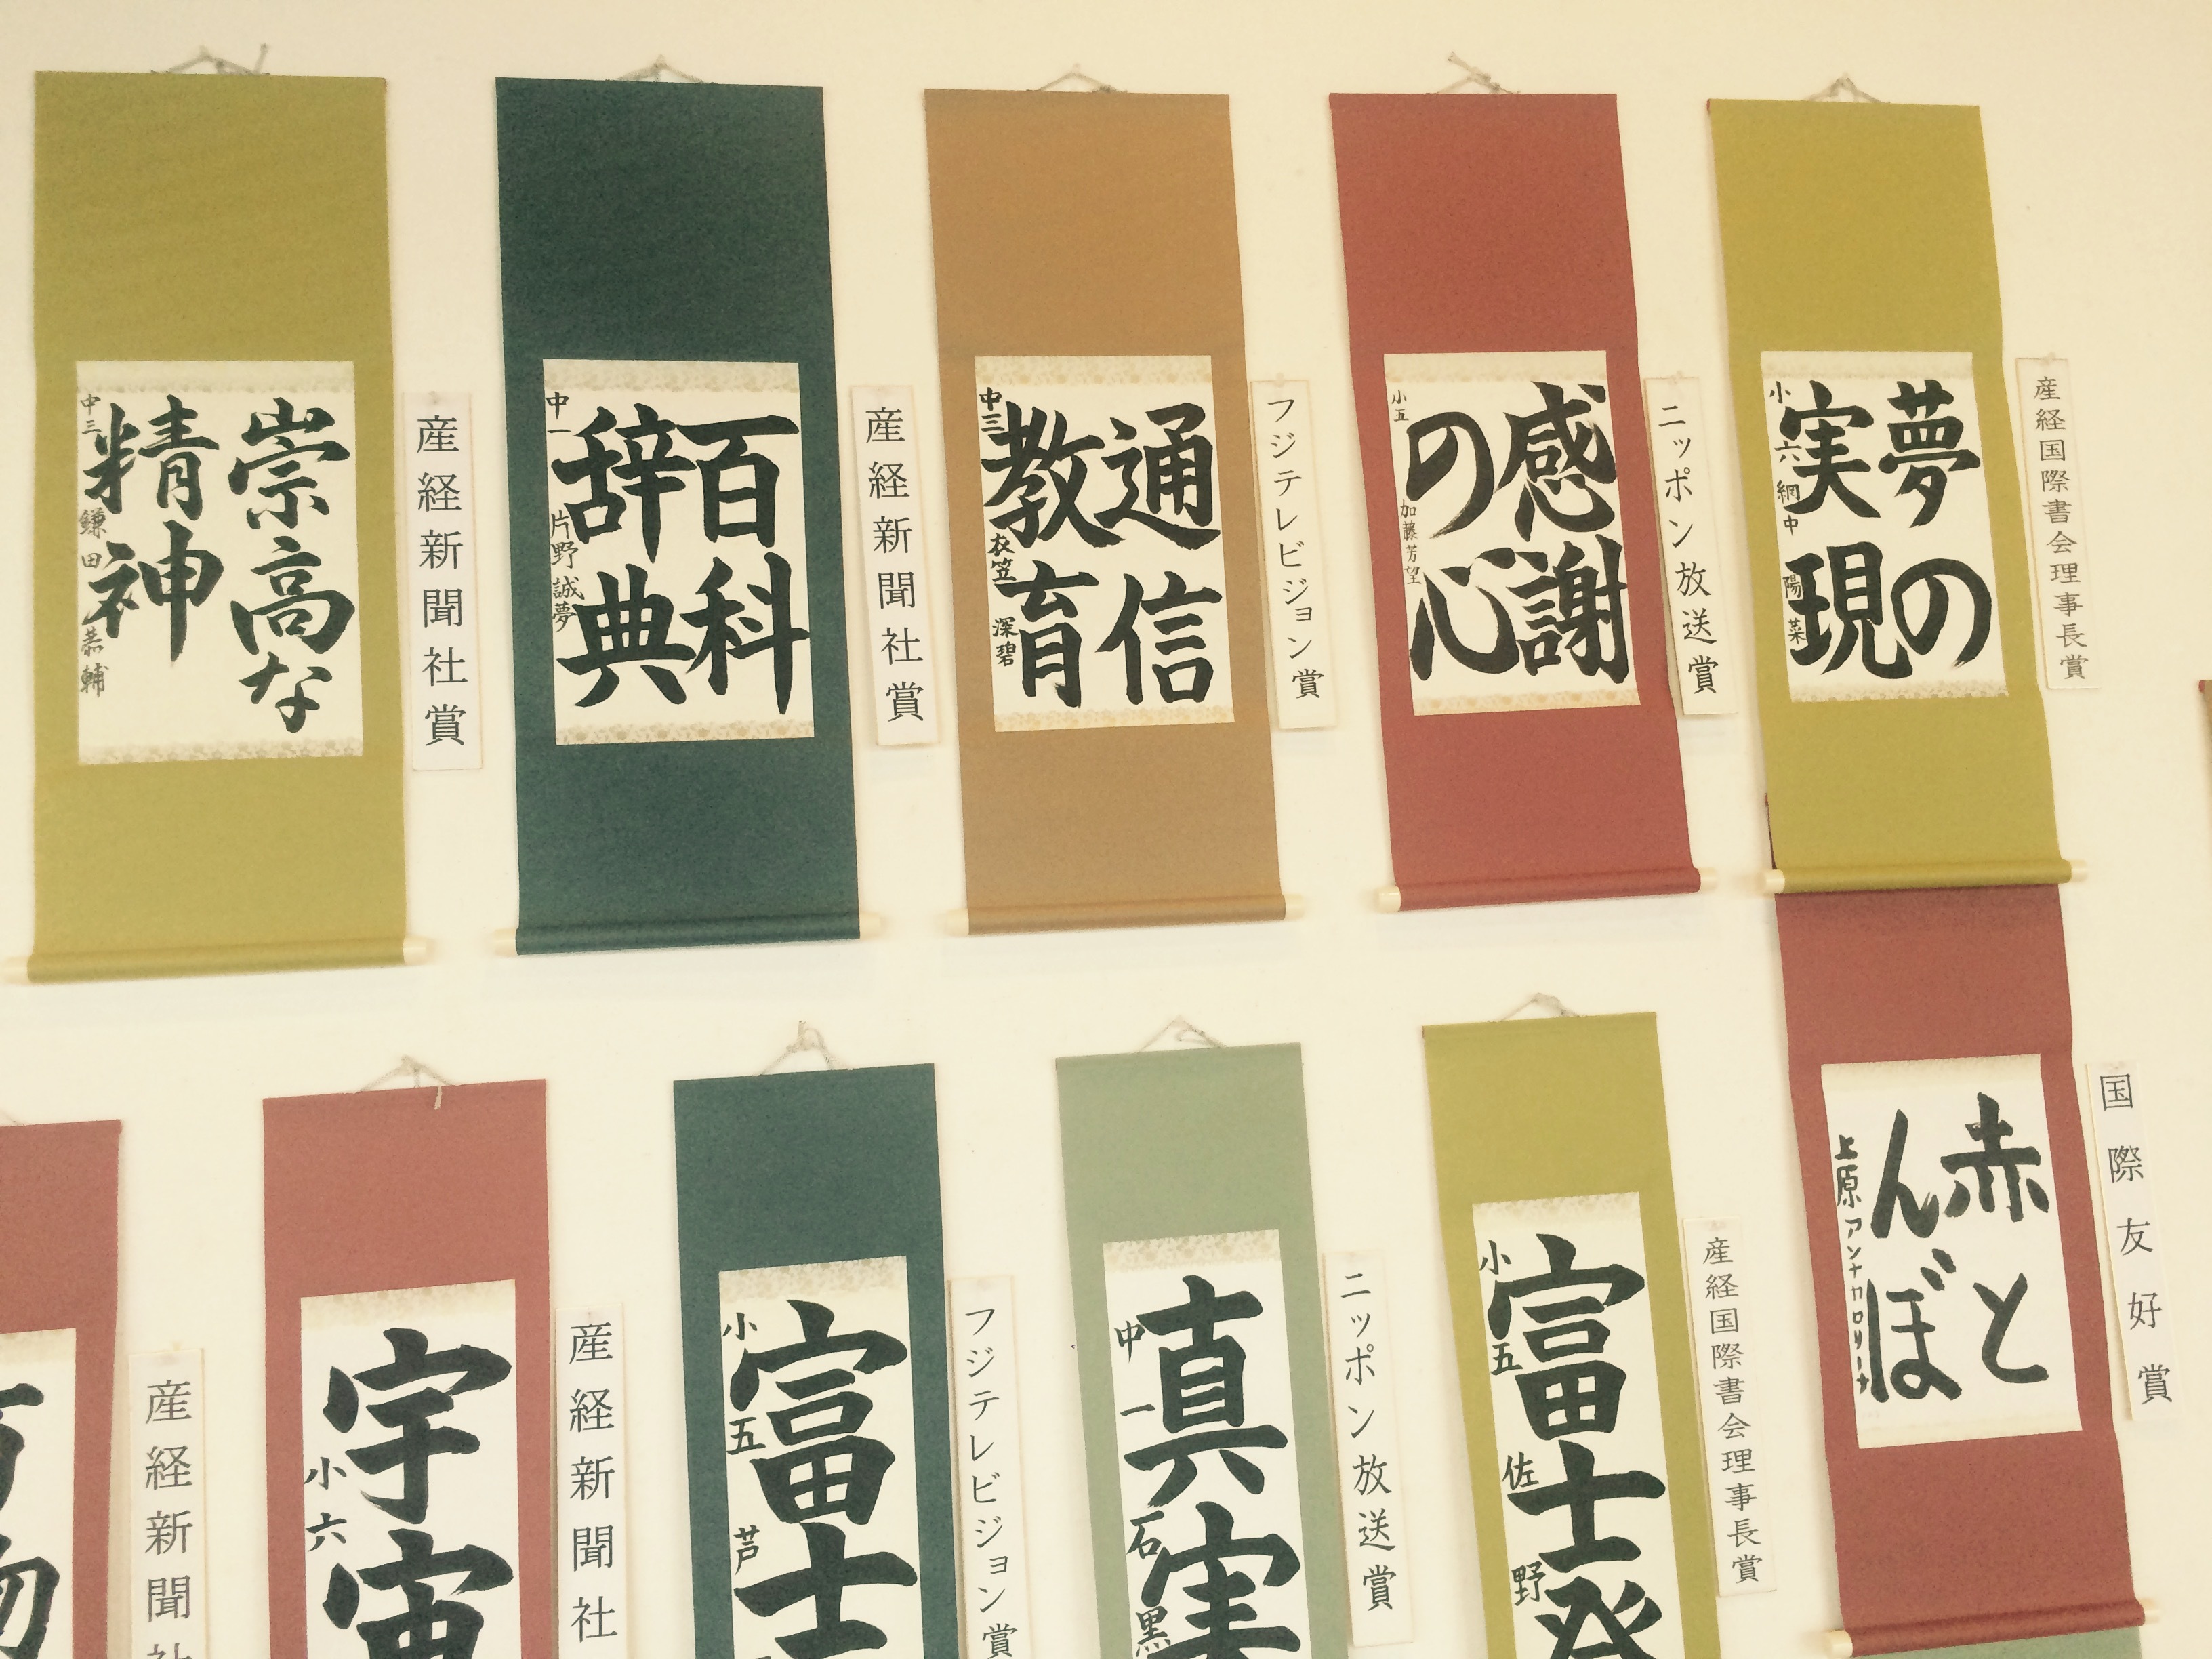 崇高な
精神
中三 鎌田 恭輔
産経新聞社賞
百科
辞典
中一 片野 誠夢
産経新聞社賞
通信
教育
中三 衣笠 深碧
フジテレビジョン賞
感謝
の心
小五 加藤芳望
ニッポン放送賞
夢の
実現
小六 網中 陽菜
産経国際書会理事長賞
産経新聞社
宇宙
小六
産経新聞社
富士
小五 芦
フジテレビジョン賞
真実
中一 石黒
ニッポン放送賞
富士登
小五 佐野
産経国際書会理事長賞
赤と
んぼ
上原アンナカロリーナ
国際友好賞